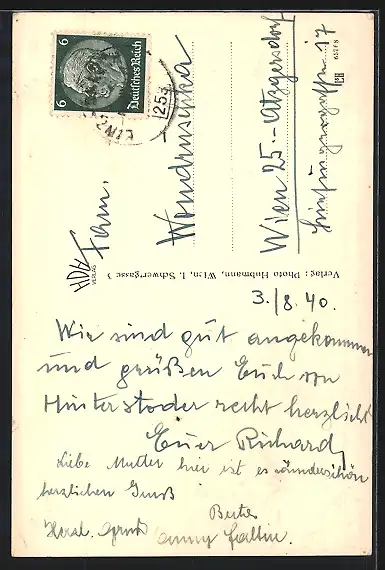 6 6
Deutsches Reich
WIEN
1253
Fam.
Wondruschka
Wien 25.-Atzgersdorf
17
HDH
VERLAG
Verlag: Photo Hubmann, Wien, I. Schwertgasse 3
3./8. 40.
Wir sind gut angekommen
und grüßen Euch von
Hinterstoder recht herzlich
Euer Richard
Liebe Mutter hier ist es wunderschön
herzlichen Gruß
Berta
Herzl. Gruß